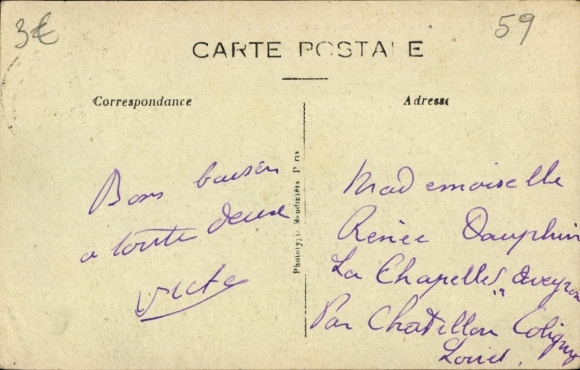 3€
59
CARTE POSTALE
Correspondance
Adresse
Bons baiser
a toute deux
Mademoiselle
Renée Dauphin
La Chapelle s/ Aveyron
Par Chatillon Coligny
Loiret.